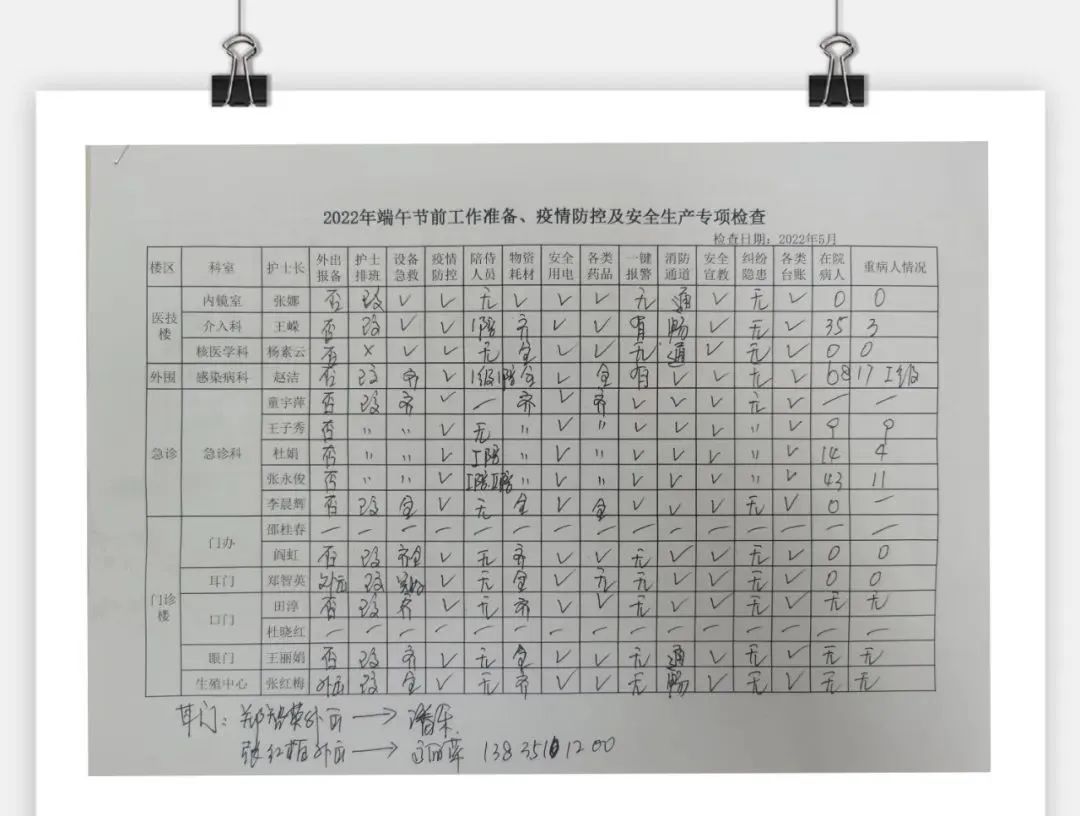 2022年端午节前工作准备、疫情防控及安全生产专项检查
检查日期：2022年5月
楼区 科室 护士长 外出报备 护士排班 设备急救 疫情防控 陪侍人员 物资耗材 安全用电 各类药品 一键报警 消防通道 安全宣教 纠纷隐患 各类台账 在院病人 重病人情况
医技楼 内镜室 张娜 否 √ √ 无 √ √ √ 无 通 √ 无 √ 0 0
介入科 王嵘 否 √ √ 1陪 齐 √ √ 有 畅 √ 无 √ 35 3
核医学科 杨素云 否 × √ √ 无 全 √ √ 无 通 √ 无 √ 0 0
外围 感染病科 赵洁 否 齐 √ 1级1陪 全 √ 全 有 √ √ 无 √ 68 17 I级
急诊 急诊科 童宇萍 否 齐 √ — 齐 √ 齐 √ √ √ 无 √ — —
王子秀 否 〃 〃 √ 无 〃 √ 〃 √ √ √ 〃 √ 9 9
杜娟 否 〃 〃 √ I陪 〃 √ 〃 √ √ √ 〃 √ 14 4
张永俊 否 〃 〃 √ 〃 √ 〃 √ √ √ 〃 √ 43 11
李晨辉 否 全 √ 无 全 √ 全 √ √ √ 无 √ 0 —
门诊楼 门办 邵桂春 — — — — — — — — — — — — — — —
阎虹 否 齐全 √ 无 齐 √ √ 无 √ √ 无 √ 0 0
耳门 郑智英 外面 √ 无 全 √ 无 无 √ √ 无 √ 0 0
口门 田淳 否 齐 √ 无 齐 √ √ 无 √ √ 无 √ 无 无
杜晓红 — — — — — — — — — — — — — — —
眼门 王丽娟 否 齐 √ 无 全 √ √ 无 通 √ 无 √ 无 无
生殖中心 张红梅 外面 全 √ 无 齐 √ √ 无 畅 √ 无 √ 无 无
耳门：郑智英外面 →
张红梅外面 →